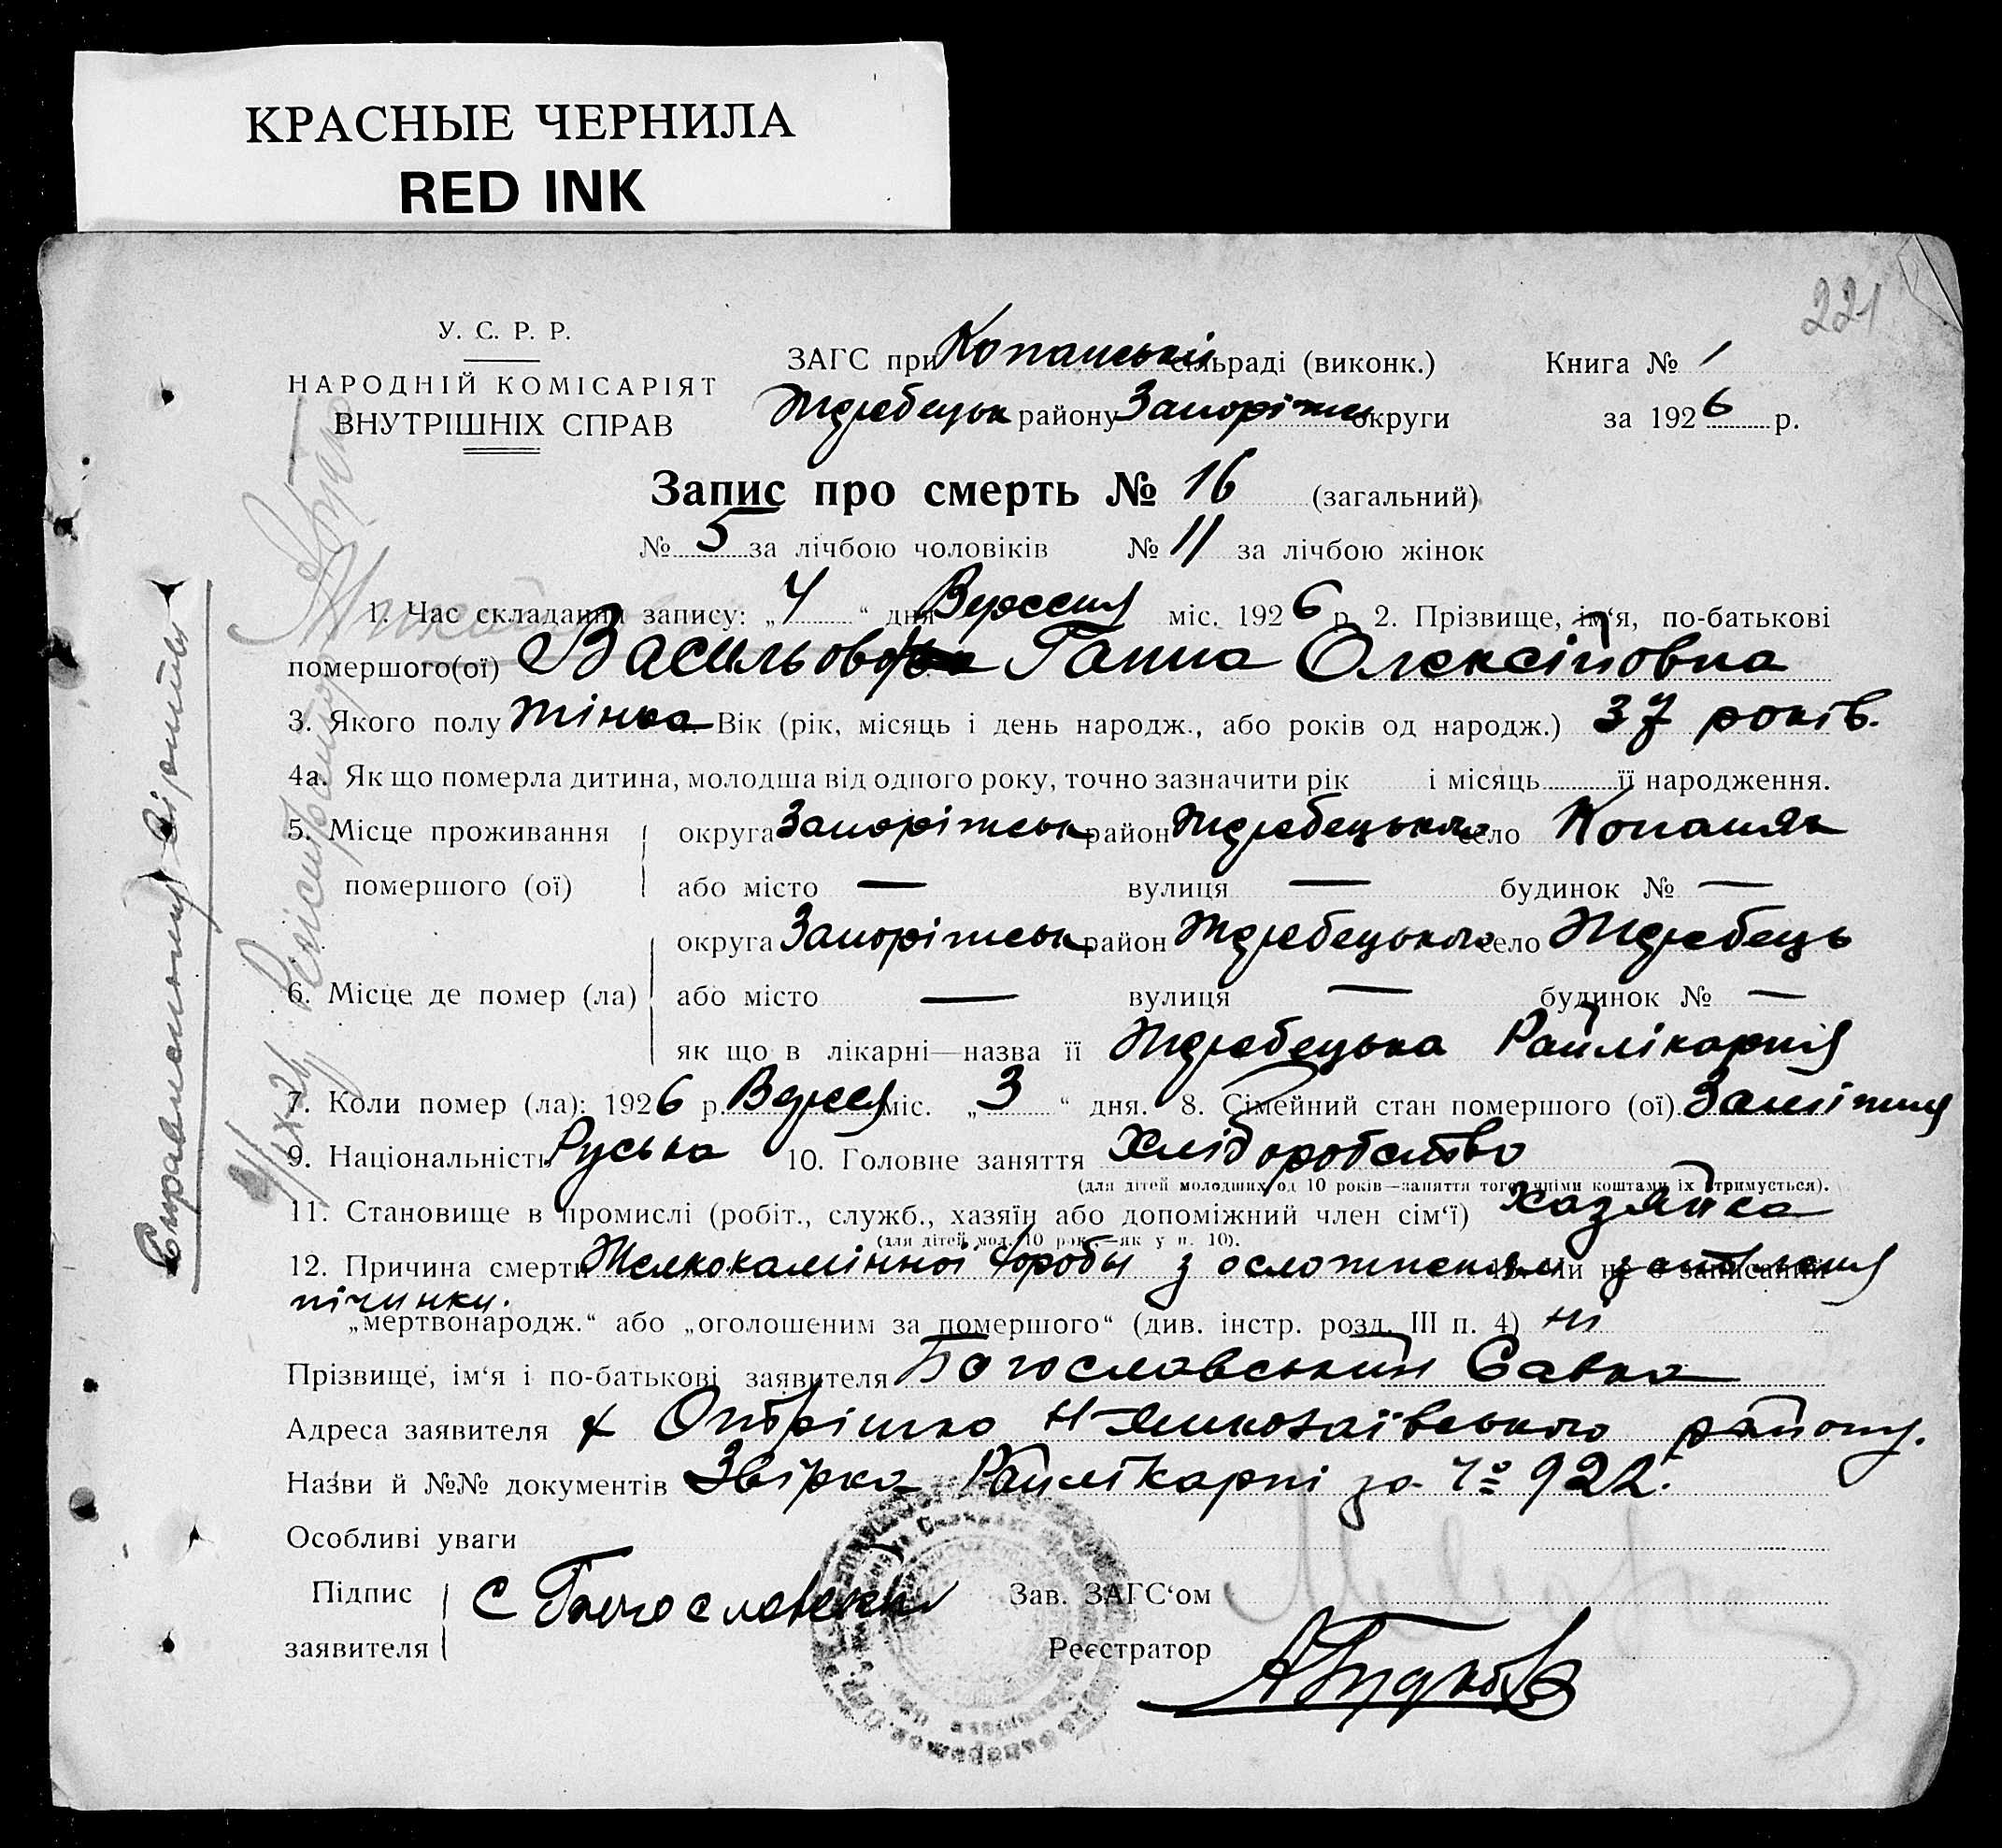 КРАСНЫЕ ЧЕРНИЛА
RED INK
221
У. С. Р. Р.
НАРОДНІЙ КОМІСАРІЯТ
ВНУТРІШНІХ СПРАВ
ЗАГС при Копанській сільраді (виконк.)
Жеребецьк району Запоріжс округи
Книга № 1
за 1926 р.
Запис про смерть № 16 (загальний)
№ 5 за лічбою чоловіків № 11 за лічбою жінок
1. Час складання запису: „4“ дня Вересня міс. 1926 р. 2. Прізвище, ім‘я, по-батькові
помершого(ої) Ганна Олексіївна
3. Якого полу жінка Вік (рік, місяць і день народж., або років од народж.) 37 років.
4а. Як що померла дитина, молодша від одного року, точно зазначити рік і місяць її народження.
5. Місце проживання округа Запоріжськ район Жеребецького село Копаням
помершого (ої) або місто — вулиця — будинок № —
округа Запоріжськ район Жеребецького село Жеребець
6. Місце де помер (ла) або місто — вулиця — будинок № —
як що в лікарні—назва її Жеребецька Райлікарня
7. Коли помер (ла): 1926 р. Вересня міс. „3“ дня. 8. Сімейний стан помершого (ої) Заміжня
9. Національність Руська 10. Головне заняття Хліборобство
(для дітей молодших од 10 років—заняття того, чиїми коштами їх утримується).
11. Становище в промислі (робіт., служб., хазяїн або допоміжний член сім‘ї) хазяйка
(для дітей мол. 10 рок.—як у п. 10).
12. Причина смерти Желкокамінної хороби з осложненям запаленя
пічинки.
„мертвонародж.“ або „оголошеним за помершого“ (див. інстр. розд. III п. 4) ні
Прізвище, ім‘я і по-батькові заявителя Богославський Савка
Адреса заявителя х району.
Назви й №№ документів Райлікарні за № 922.
Особливі уваги
Підпис
заявителя
С Богославский
Зав. ЗАГС‘ом
Реєстратор